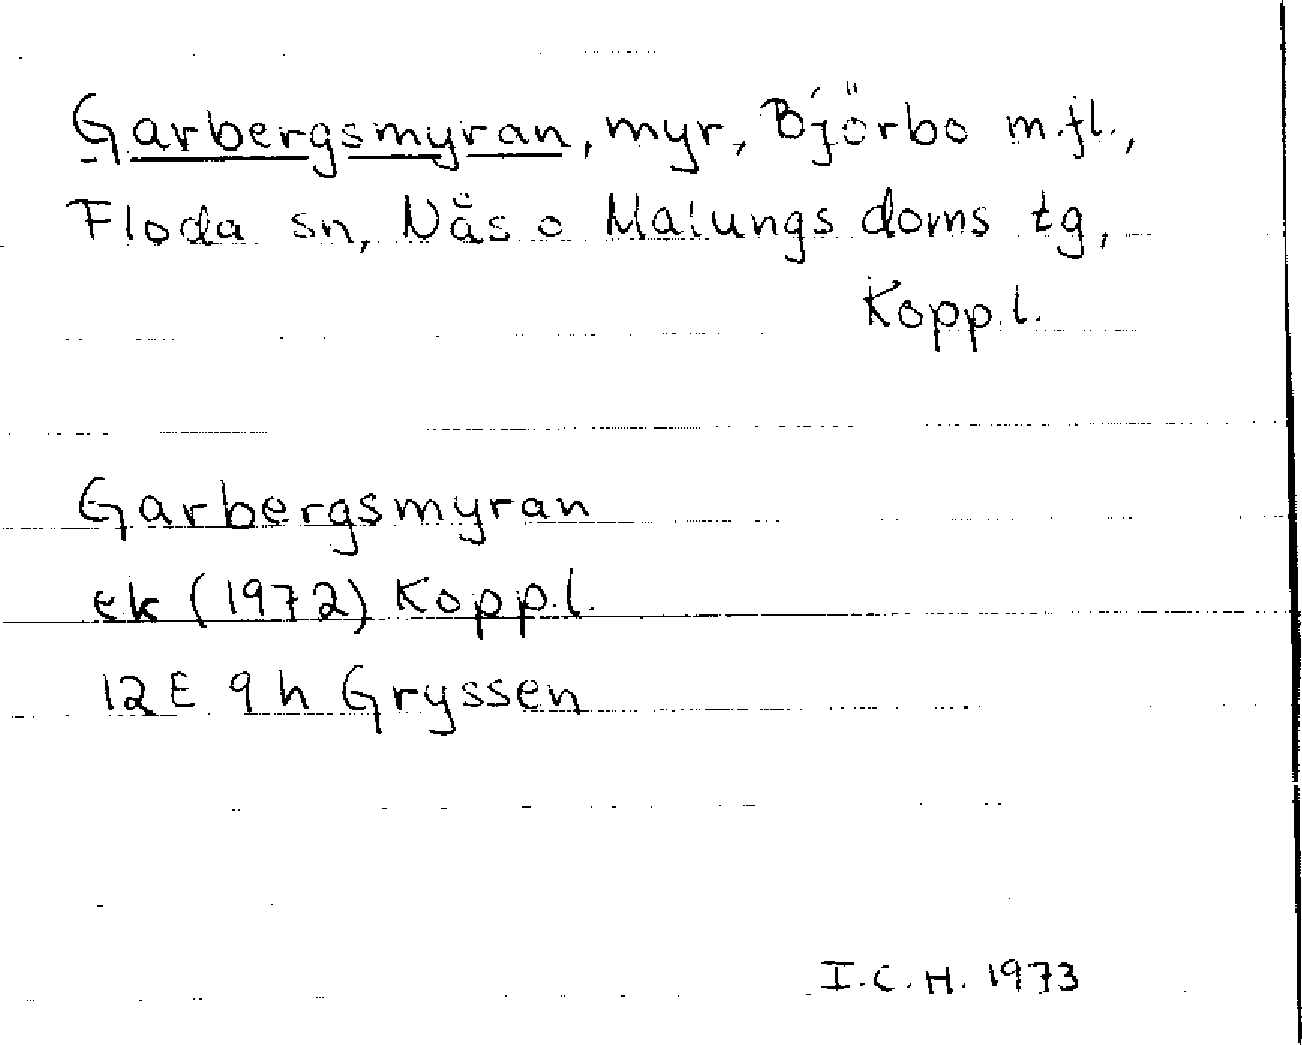 Garbergsmyran, myr, Björbo m.fl.,
Floda sn, Nås o Malungs doms tg,
Kopp.l.
Garbergsmyran
ek (1972) Kopp.l.
12E 9h Gryssen
I.C.H. 1973